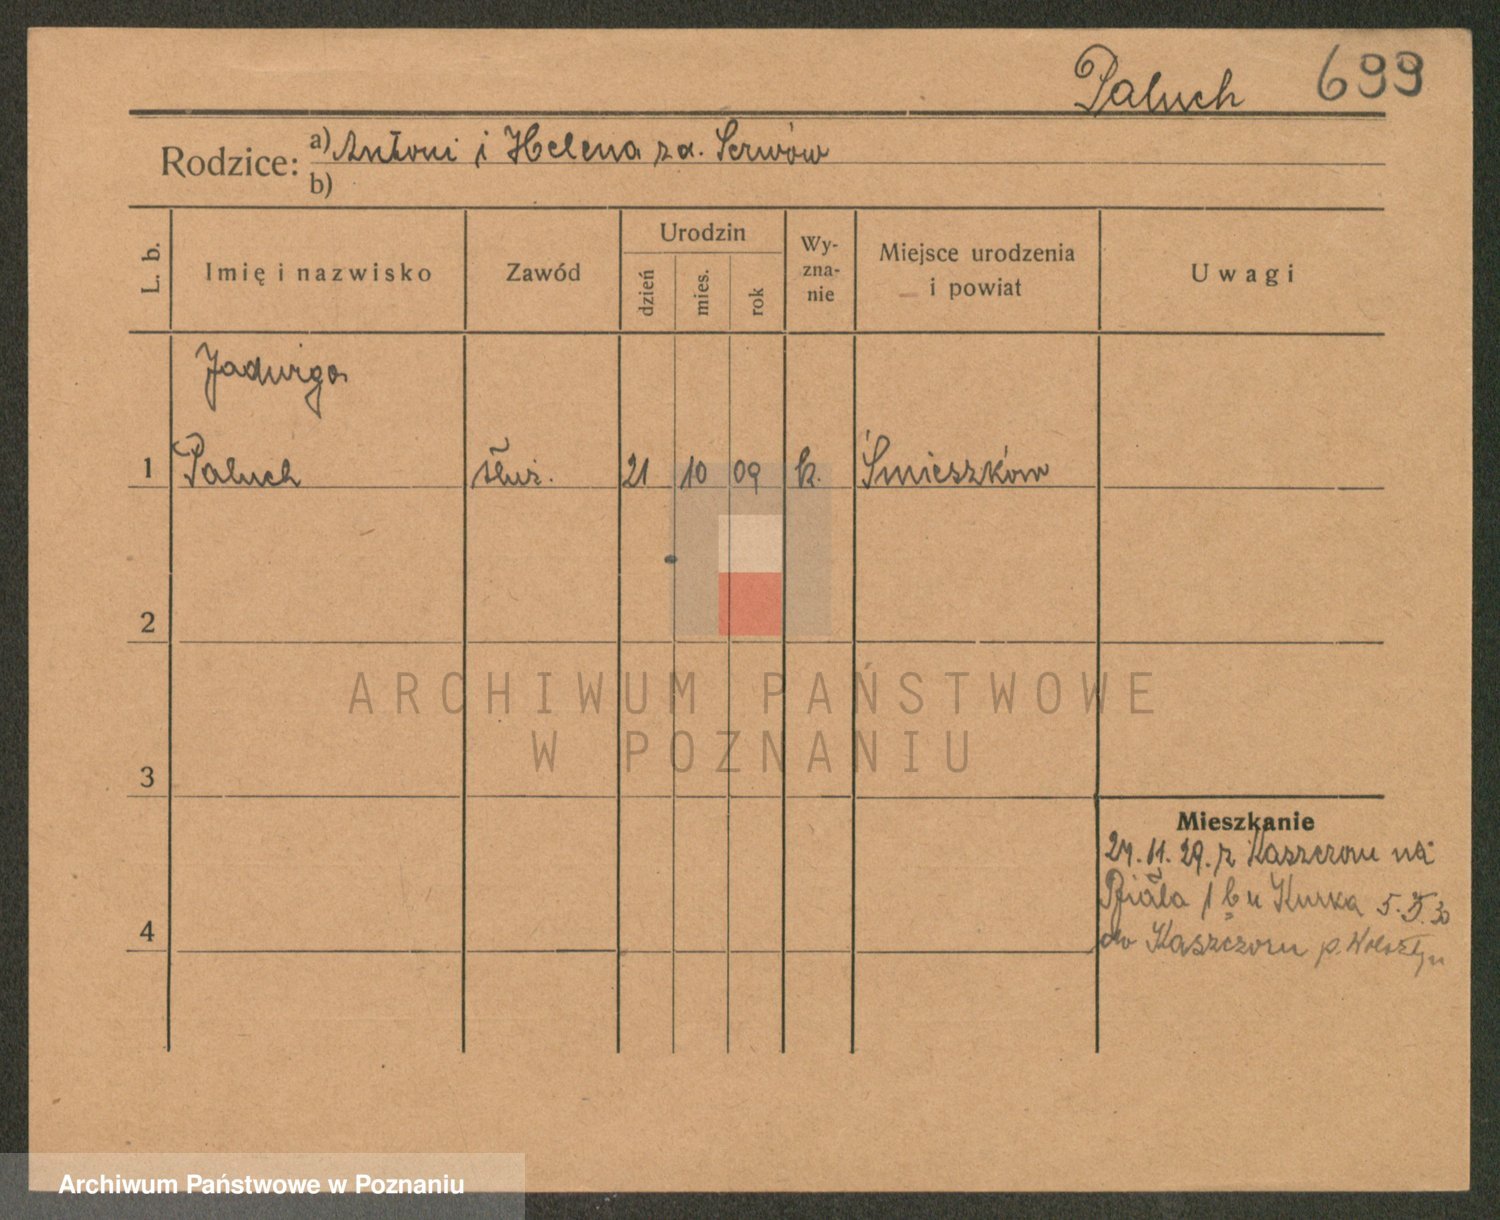 Paluch 699
Rodzice: a) Antoni i Helena za. Serwów
b)
L. b. Imię i nazwisko Zawód Urodzin Wy-zna-nie Miejsce urodzenia i powiat Uwagi
dzień mies. rok
Jadwiga
1 Paluch służ. 21 10 09 k. Śmieszków
2
ARCHIWUM PAŃSTWOWE
W POZNANIU
3
Mieszkanie
11. 29. z Kaszczoru na
Biała 1 b u Kurka 5. 30
4
do Kaszczoru p. Wolsztyn
Archiwum Państwowe w Poznaniu